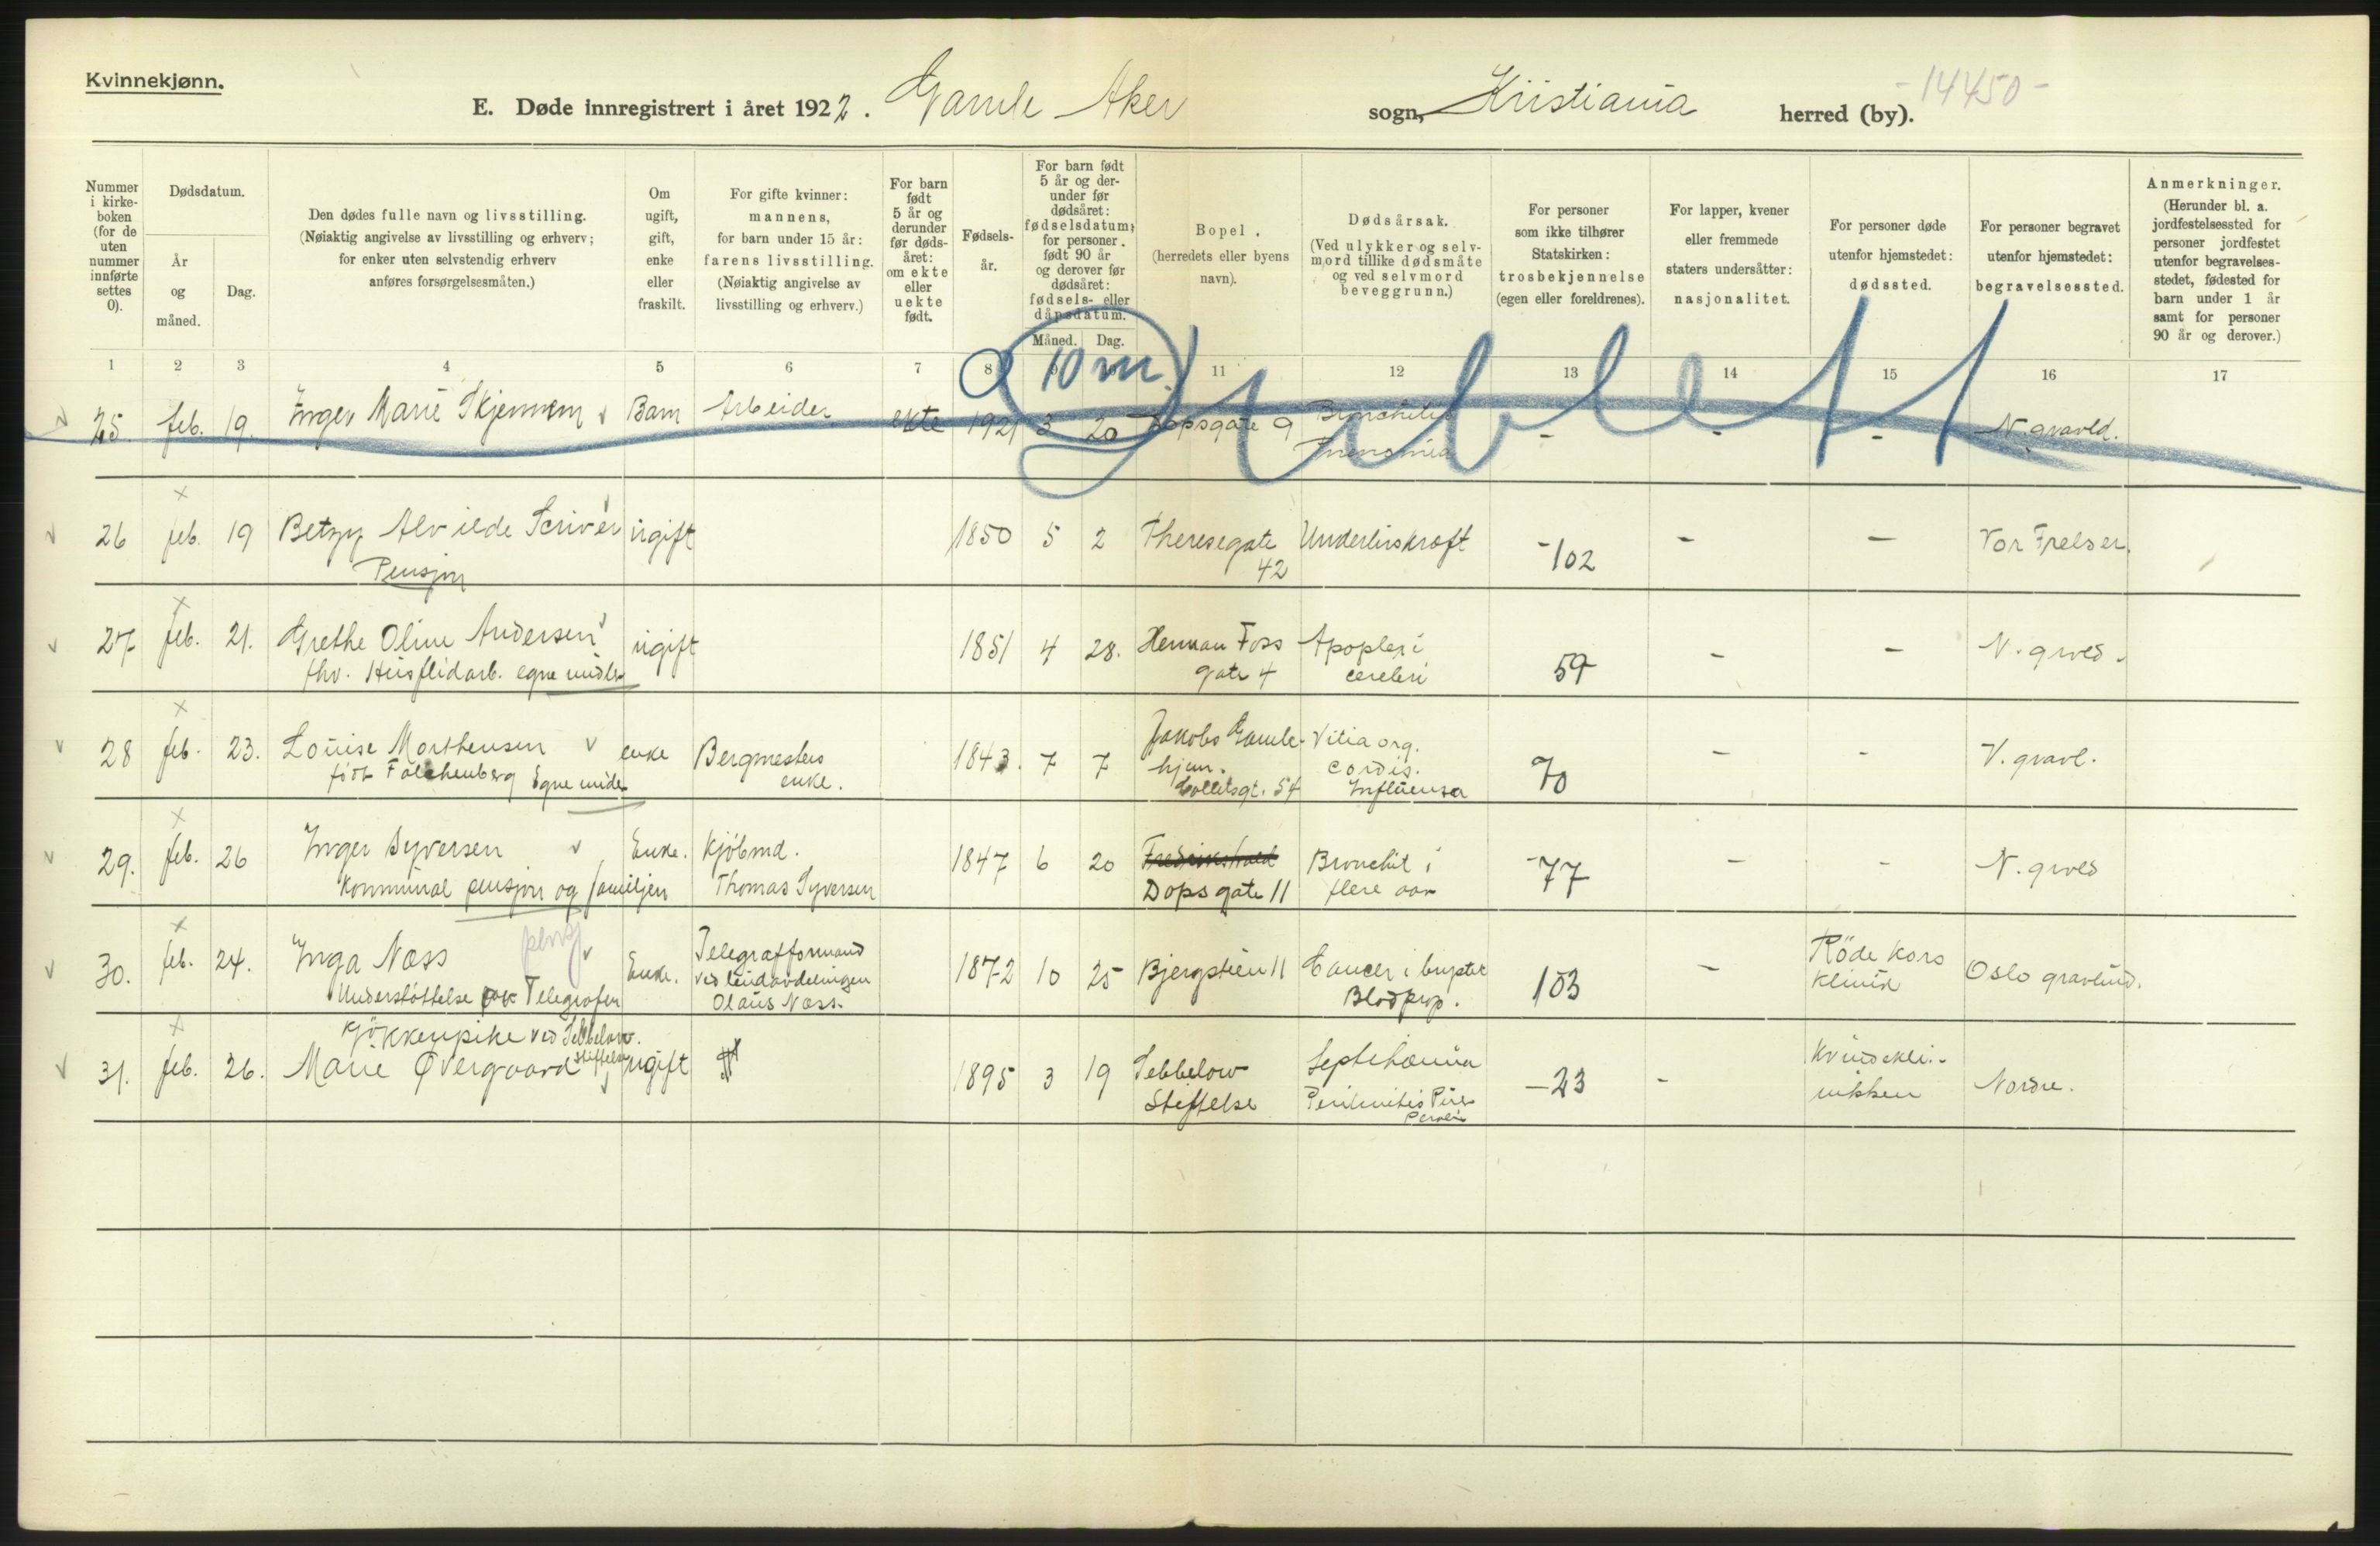 Kvinnekjønn.
E. Døde innregistrert i året 1922. Gamle Aker sogn, Kristiania herred (by). -14450-
Nummer i kirkeboken (for de uten nummer innførte settes 0).
Dødsdatum.
År og måned.
Dag.
Den dødes fulle navn og livsstilling.
(Nøiaktig angivelse av livsstilling og erhverv;
for enker uten selvstendig erhverv
anføres forsørgelsesmåten.)
Om ugift, gift, enke eller fraskilt.
For gifte kvinner:
mannens,
for barn under 15 år:
farens livsstilling.
(Nøiaktig angivelse av
livsstilling og erhverv.)
For barn født 5 år og derunder før dødsåret: om ekte eller uekte født.
Fødselsår.
For barn født 5 år og derunder før dødsåret: fødselsdatum; for personer født 90 år og derover før dødsåret: fødsels- eller dåpsdatum.
Måned. Dag.
Bopel.
(herredets eller byens
navn).
Dødsårsak.
(Ved ulykker og selvmord tillike dødsmåte og ved selvmord beveggrunn.)
For personer
som ikke tilhører
Statskirken:
trosbekjennelse
(egen eller foreldrenes).
For lapper, kvener
eller fremmede
staters undersåtter:
nasjonalitet.
For personer døde
utenfor hjemstedet:
dødssted.
For personer begravet
utenfor hjemstedet:
begravelsessted.
Anmerkninger.
(Herunder bl. a.
jordfestelsessted for
personer jordfestet
utenfor begravelses-
stedet, fødested for
barn under 1 år
samt for personer
90 år og derover.)
1 2 3 4 5 6 7 8 9 10 11 12 13 14 15 16 17
10 m. dublett
25. feb. 19. Inger Marie Skjennem Barn Arbeider ekte 1921 3 20 Dopsgate 9 Bronchitis - - - N. gravld.
Pneumonia
26 feb. 19 Betzy Alvilde Scrivér ugift 1850 5 2 Theresegate Underlivskræft -102 - - Vor Frelser.
Pensjon 42
27 feb. 21. Grethe Oline Andersen ugift 1851 4 28. Herman Foss Apoplexi 59 - - N. grvld.
fhv. Husflidarb. egne midler gate 4 cerebri
28 feb. 23. Louise Morthensen enke Bergmesters 1843. 7 7 Jakobs Gamle- Vitia org. 70 - - V. gravl.
født Falchenberg Egne midler enke. hjem. cordis.
Collettsgt. 54 Influensa
29. feb. 26 Inger Syversen Enke. Kjøbmd. 1847 6 20 Fredrikshald Bronchit i -77 - - N. grvld
Kommunal pensjon og familjen Thomas Syversen Dopsgate 11 flere aar
30. feb. 24. Inga Næss pensj Enke. Telegrafformand 1872 10 25 Bjergstien 11 Cancer i brystet 103 - Röde Kors Oslo gravlund.
Understøttelse av Telegrafen ved leidavdelingen Olaus Næss. Blodprop. Klinik
Kjökkenpike ved Sebbelow. Stiftelse
31. feb. 26. Marie Øvergaard ugift 1895 3 19 Sebbelow Septikæmia -23 - Kvindekli- Nordre.
Stiftelse Peritonitis nikken